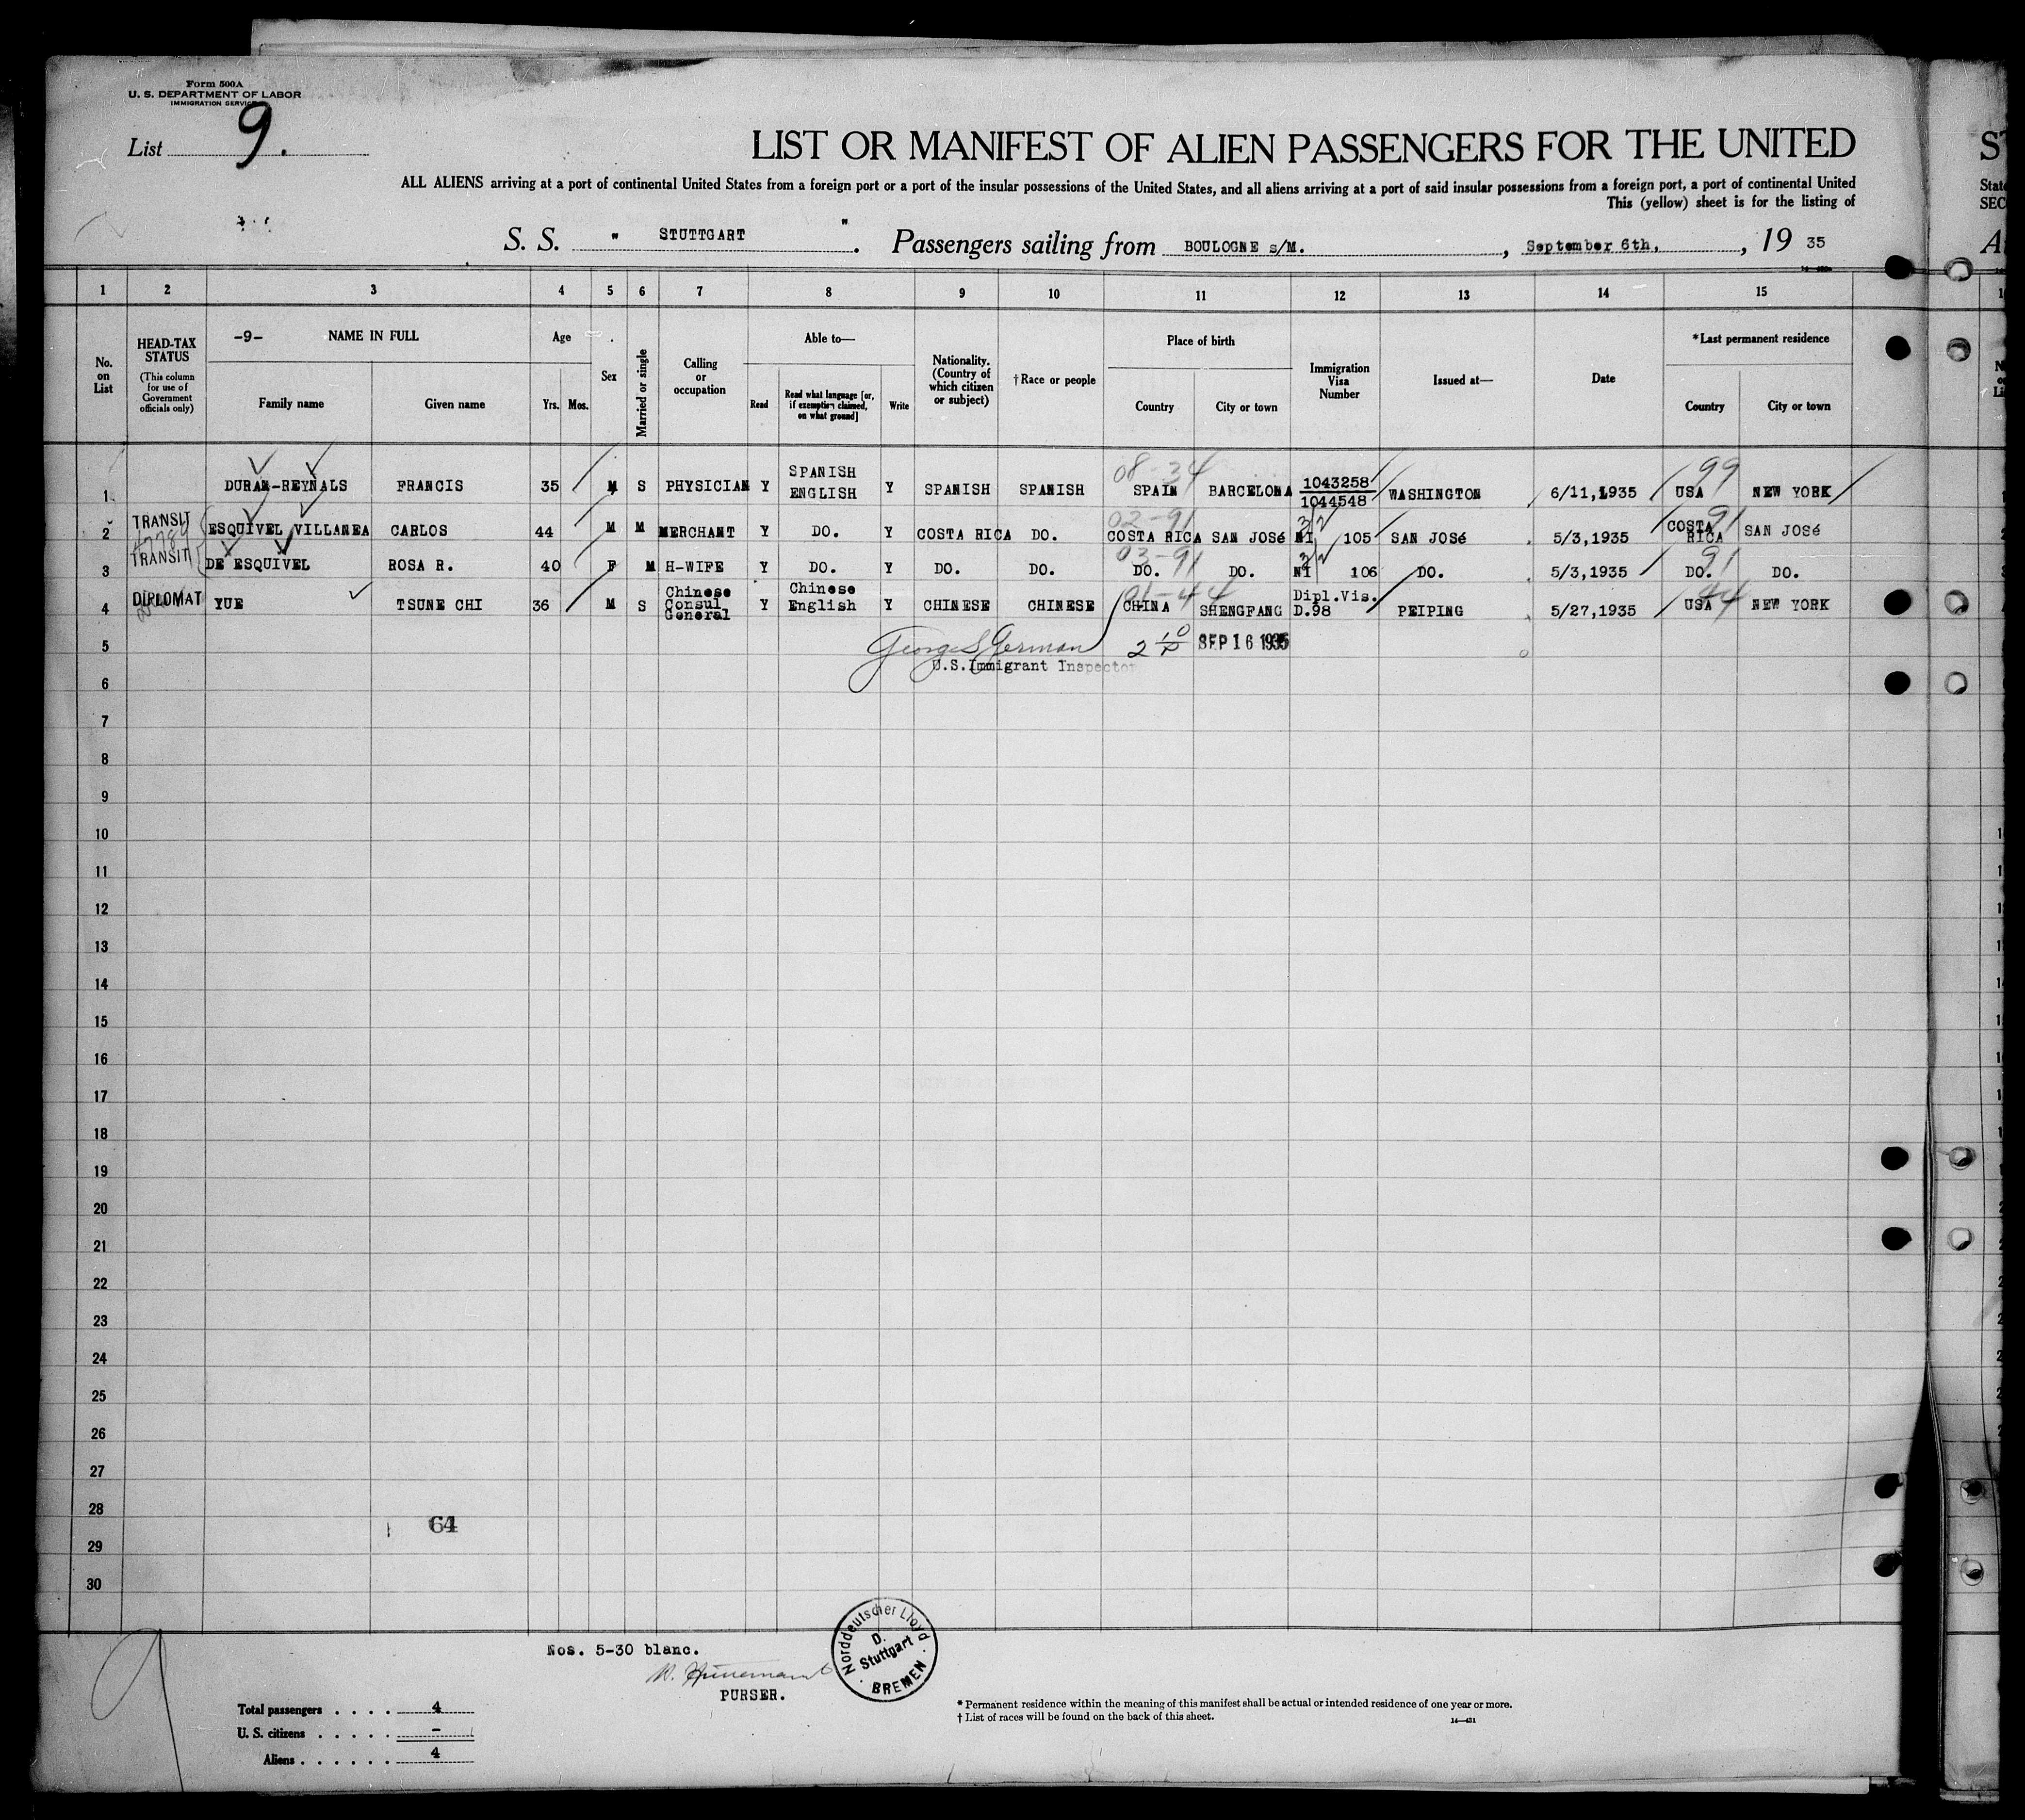 Form 500A
U. S. DEPARTMENT OF LABOR
IMMIGRATION SERVICE
List 9.
LIST OR MANIFEST OF ALIEN PASSENGERS FOR THE UNITED
ALL ALIENS arriving at a port of continental United States from a foreign port or a port of the insular possessions of the United States, and all aliens arriving at a port of said insular possessions from a foreign port, a port of continental United
This (yellow) sheet is for the listing of
S. S. " STUTTGART ". Passengers sailing from BOULOGNE s/M. , September 6th, , 19 35
1 2 3 4 5 6 7 8 9 10 11 12 13 14 15
No. on List
HEAD-TAX STATUS
(This column for use of Government officials only)
-9- NAME IN FULL
Family name Given name
Age
Yrs. Mos.
Sex
Married or single
Calling or occupation
Able to—
Read
Read what language [or, if exemption claimed, on what ground]
Write
Nationality. (Country of which citizen or subject)
†Race or people
Place of birth
Country City or town
Immigration Visa Number
Issued at—
Date
*Last permanent residence
Country City or town
08-34 99
1 DURAN-REYNALS FRANCIS 35 M S PHYSICIAN Y SPANISH ENGLISH Y SPANISH SPANISH SPAIN BARCELONA 1043258 1044548 WASHINGTON 6/11,1935 USA NEW YORK
02-91 3/2 91
2 TRANSIT ESQUIVEL VILLANEA CARLOS 44 M M MERCHANT Y DO. Y COSTA RICA DO. COSTA RICA SAN JOSé NI 105 SAN JOSé 5/3,1935 COSTA RICA SAN JOSé
03-91 3/2 91
3 TRANSIT DE ESQUIVEL ROSA R. 40 F M H-WIFE Y DO. Y DO. DO. DO. DO. NI 106 DO. 5/3,1935 DO. DO.
01-44 44
4 DIPLOMAT YUE TSUNE CHI 36 M S Chinese Consul General Y Chinese English Y CHINESE CHINESE CHINA SHENGFANG Dipl.Vis. D.98 PEIPING 5/27,1935 USA NEW YORK
5 George S German 2 10/P SEP 16 1935
U.S.Immigrant Inspector
6
7
8
9
10
11
12
13
14
15
16
17
18
19
20
21
22
23
24
25
26
27
28
64
29
30
Nos. 5-30 blanc.
PURSER.
Norddeutscher Lloyd
D.
Stuttgart
BREMEN
9
Total passengers . . . . 4
U. S. citizens . . . . . -
Aliens . . . . . . 4
* Permanent residence within the meaning of this manifest shall be actual or intended residence of one year or more.
† List of races will be found on the back of this sheet.